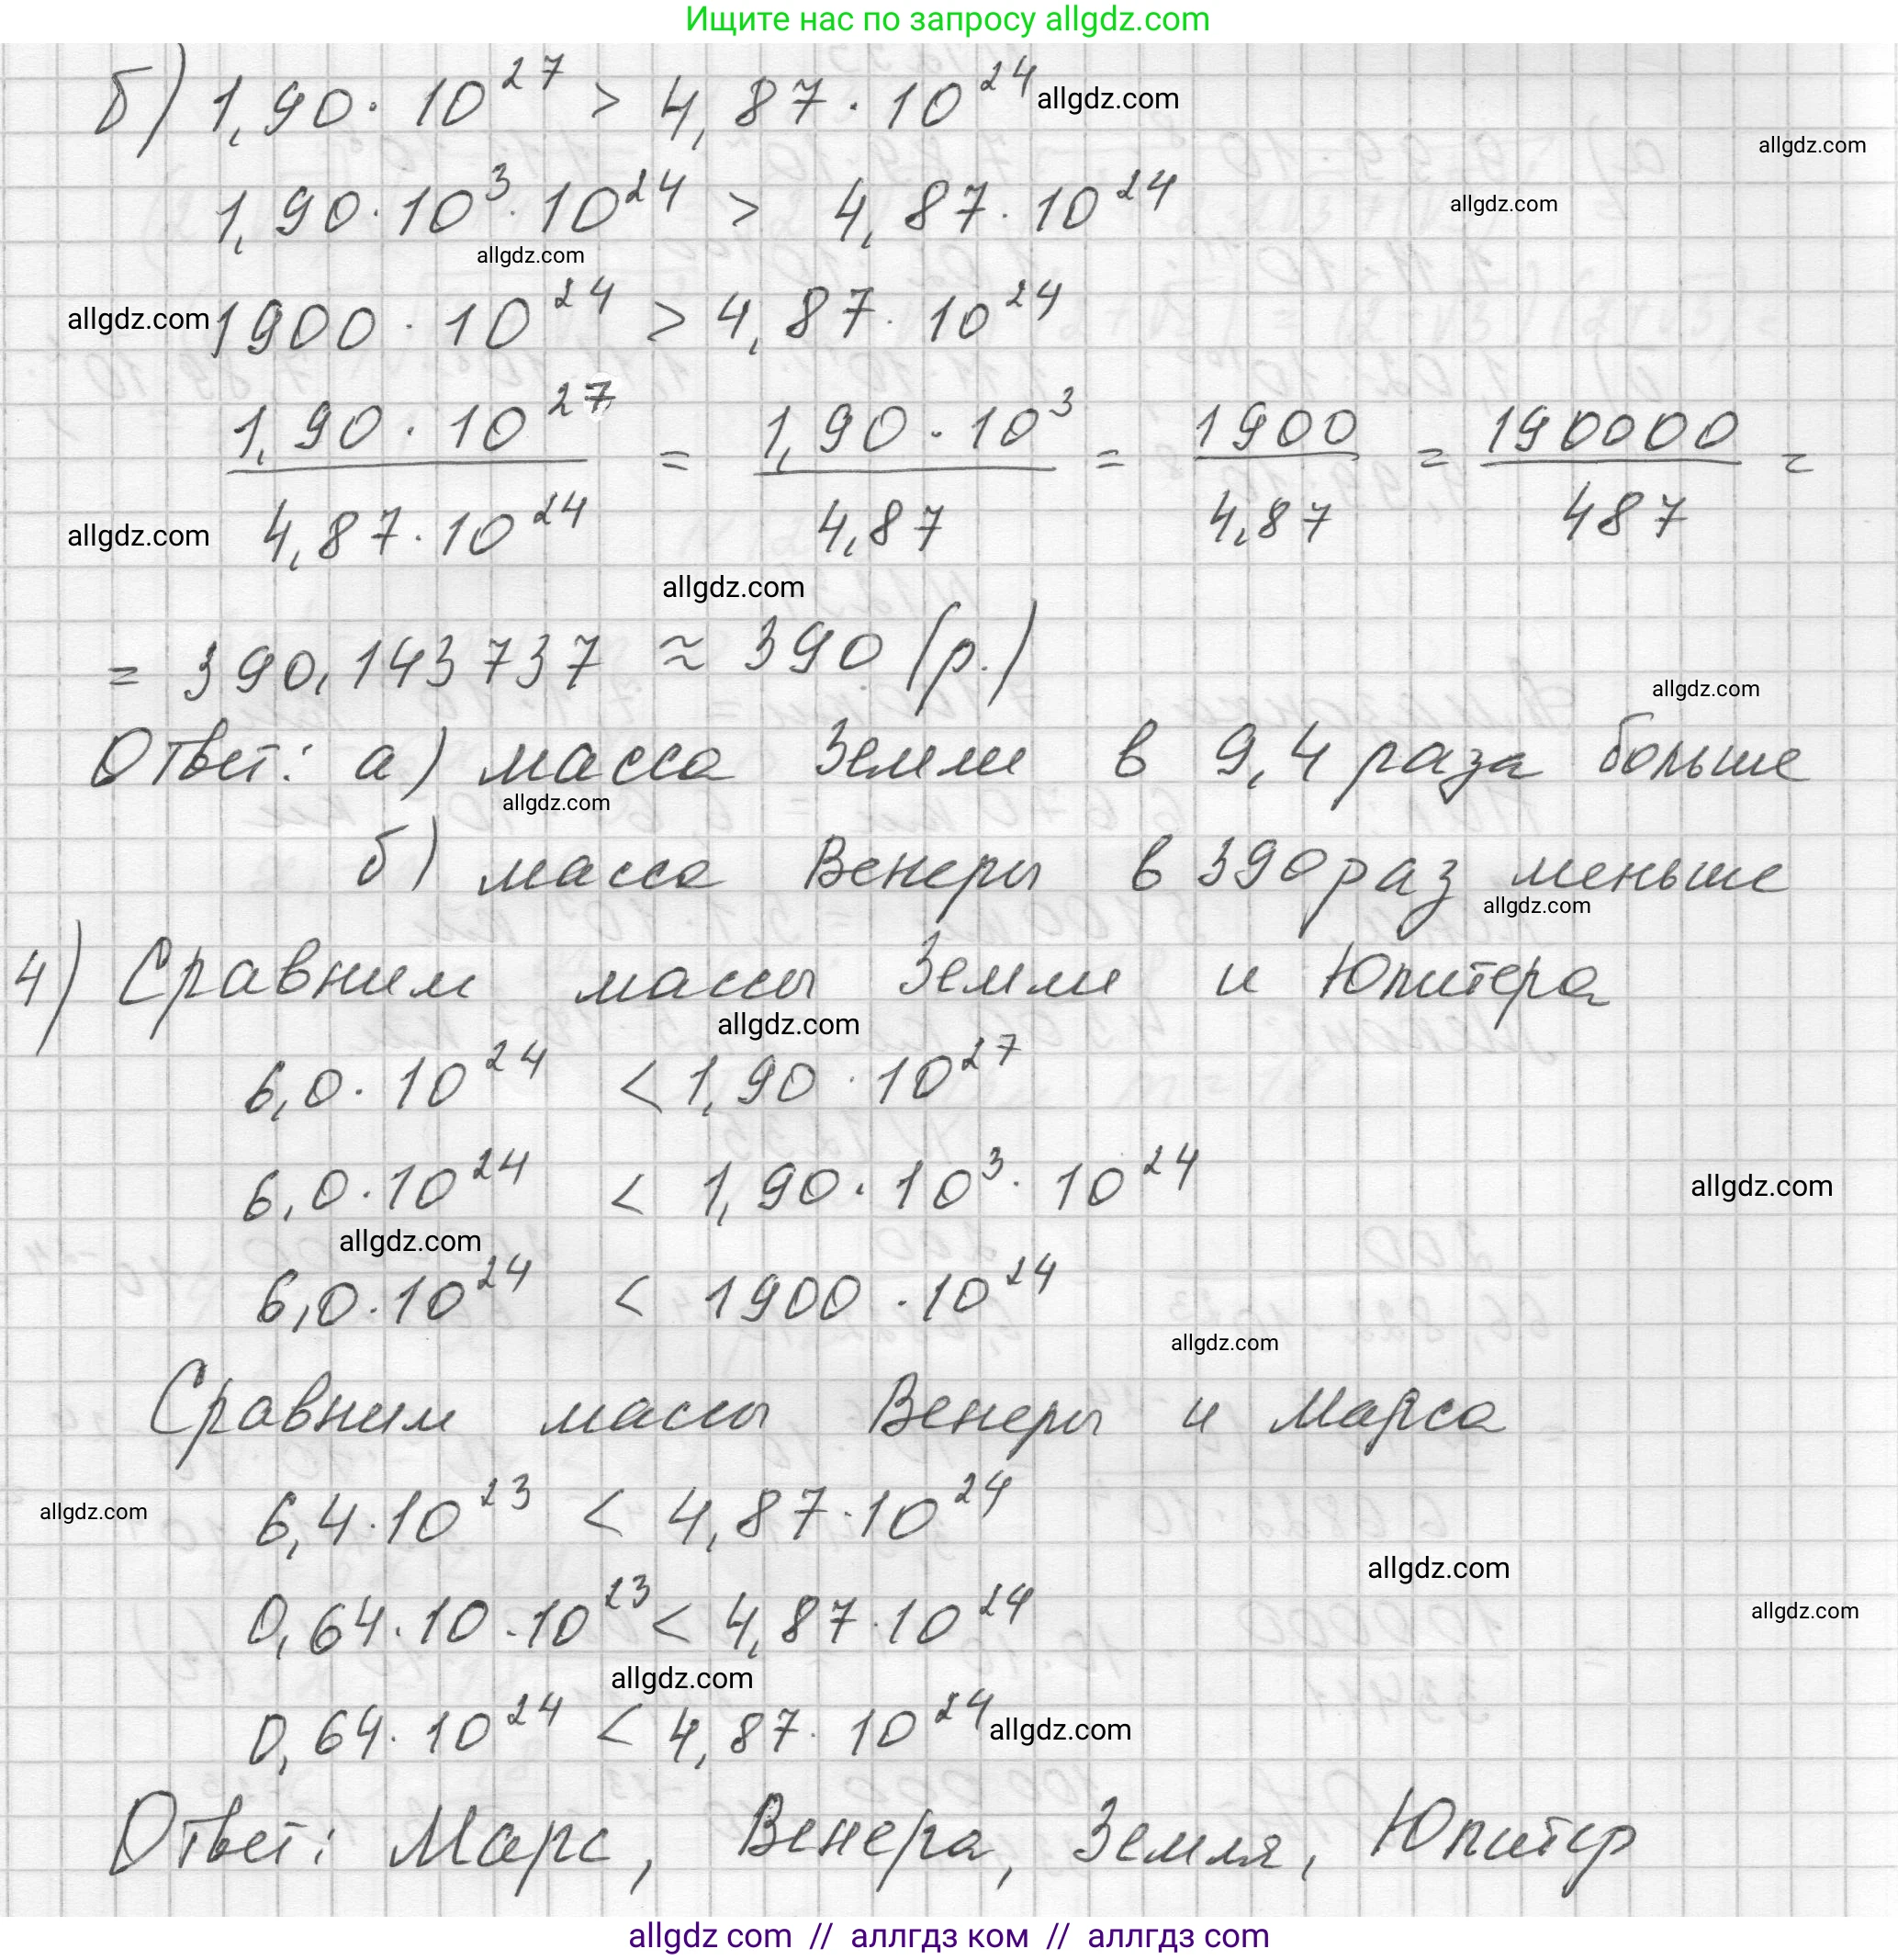 Ищите нас по запросу allgdz.com
б) 1,90 · 10^27 > 4,87 · 10^24 allgdz.com
allgdz.com
1,90 · 10^3 · 10^24 > 4,87 · 10^24
allgdz.com
allgdz.com
allgdz.com 1900 · 10^24 > 4,87 · 10^24
1,90 · 10^27 / 4,87 · 10^24 = 1,90 · 10^3 / 4,87 = 1900 / 4,87 = 190000 / 487 =
allgdz.com
allgdz.com
= 390,143737 ≈ 390 (р.)
allgdz.com
Ответ: а) масса Земли в 9,4 раза больше
allgdz.com
б) масса Венеры в 390 раз меньше
allgdz.com
4) Сравним массы Земли и Юпитера
allgdz.com
6,0 · 10^24 < 1,90 · 10^27
6,0 · 10^24 < 1,90 · 10^3 · 10^24
allgdz.com
allgdz.com
6,0 · 10^24 < 1900 · 10^24
allgdz.com
Сравним массы Венеры и Марса
6,4 · 10^23 < 4,87 · 10^24
allgdz.com
allgdz.com
0,64 · 10 · 10^23 < 4,87 · 10^24
allgdz.com
allgdz.com
0,64 · 10^24 < 4,87 · 10^24 allgdz.com
Ответ: Марс, Венера, Земля, Юпитер
allgdz.com // аллгдз ком // аллгдз com